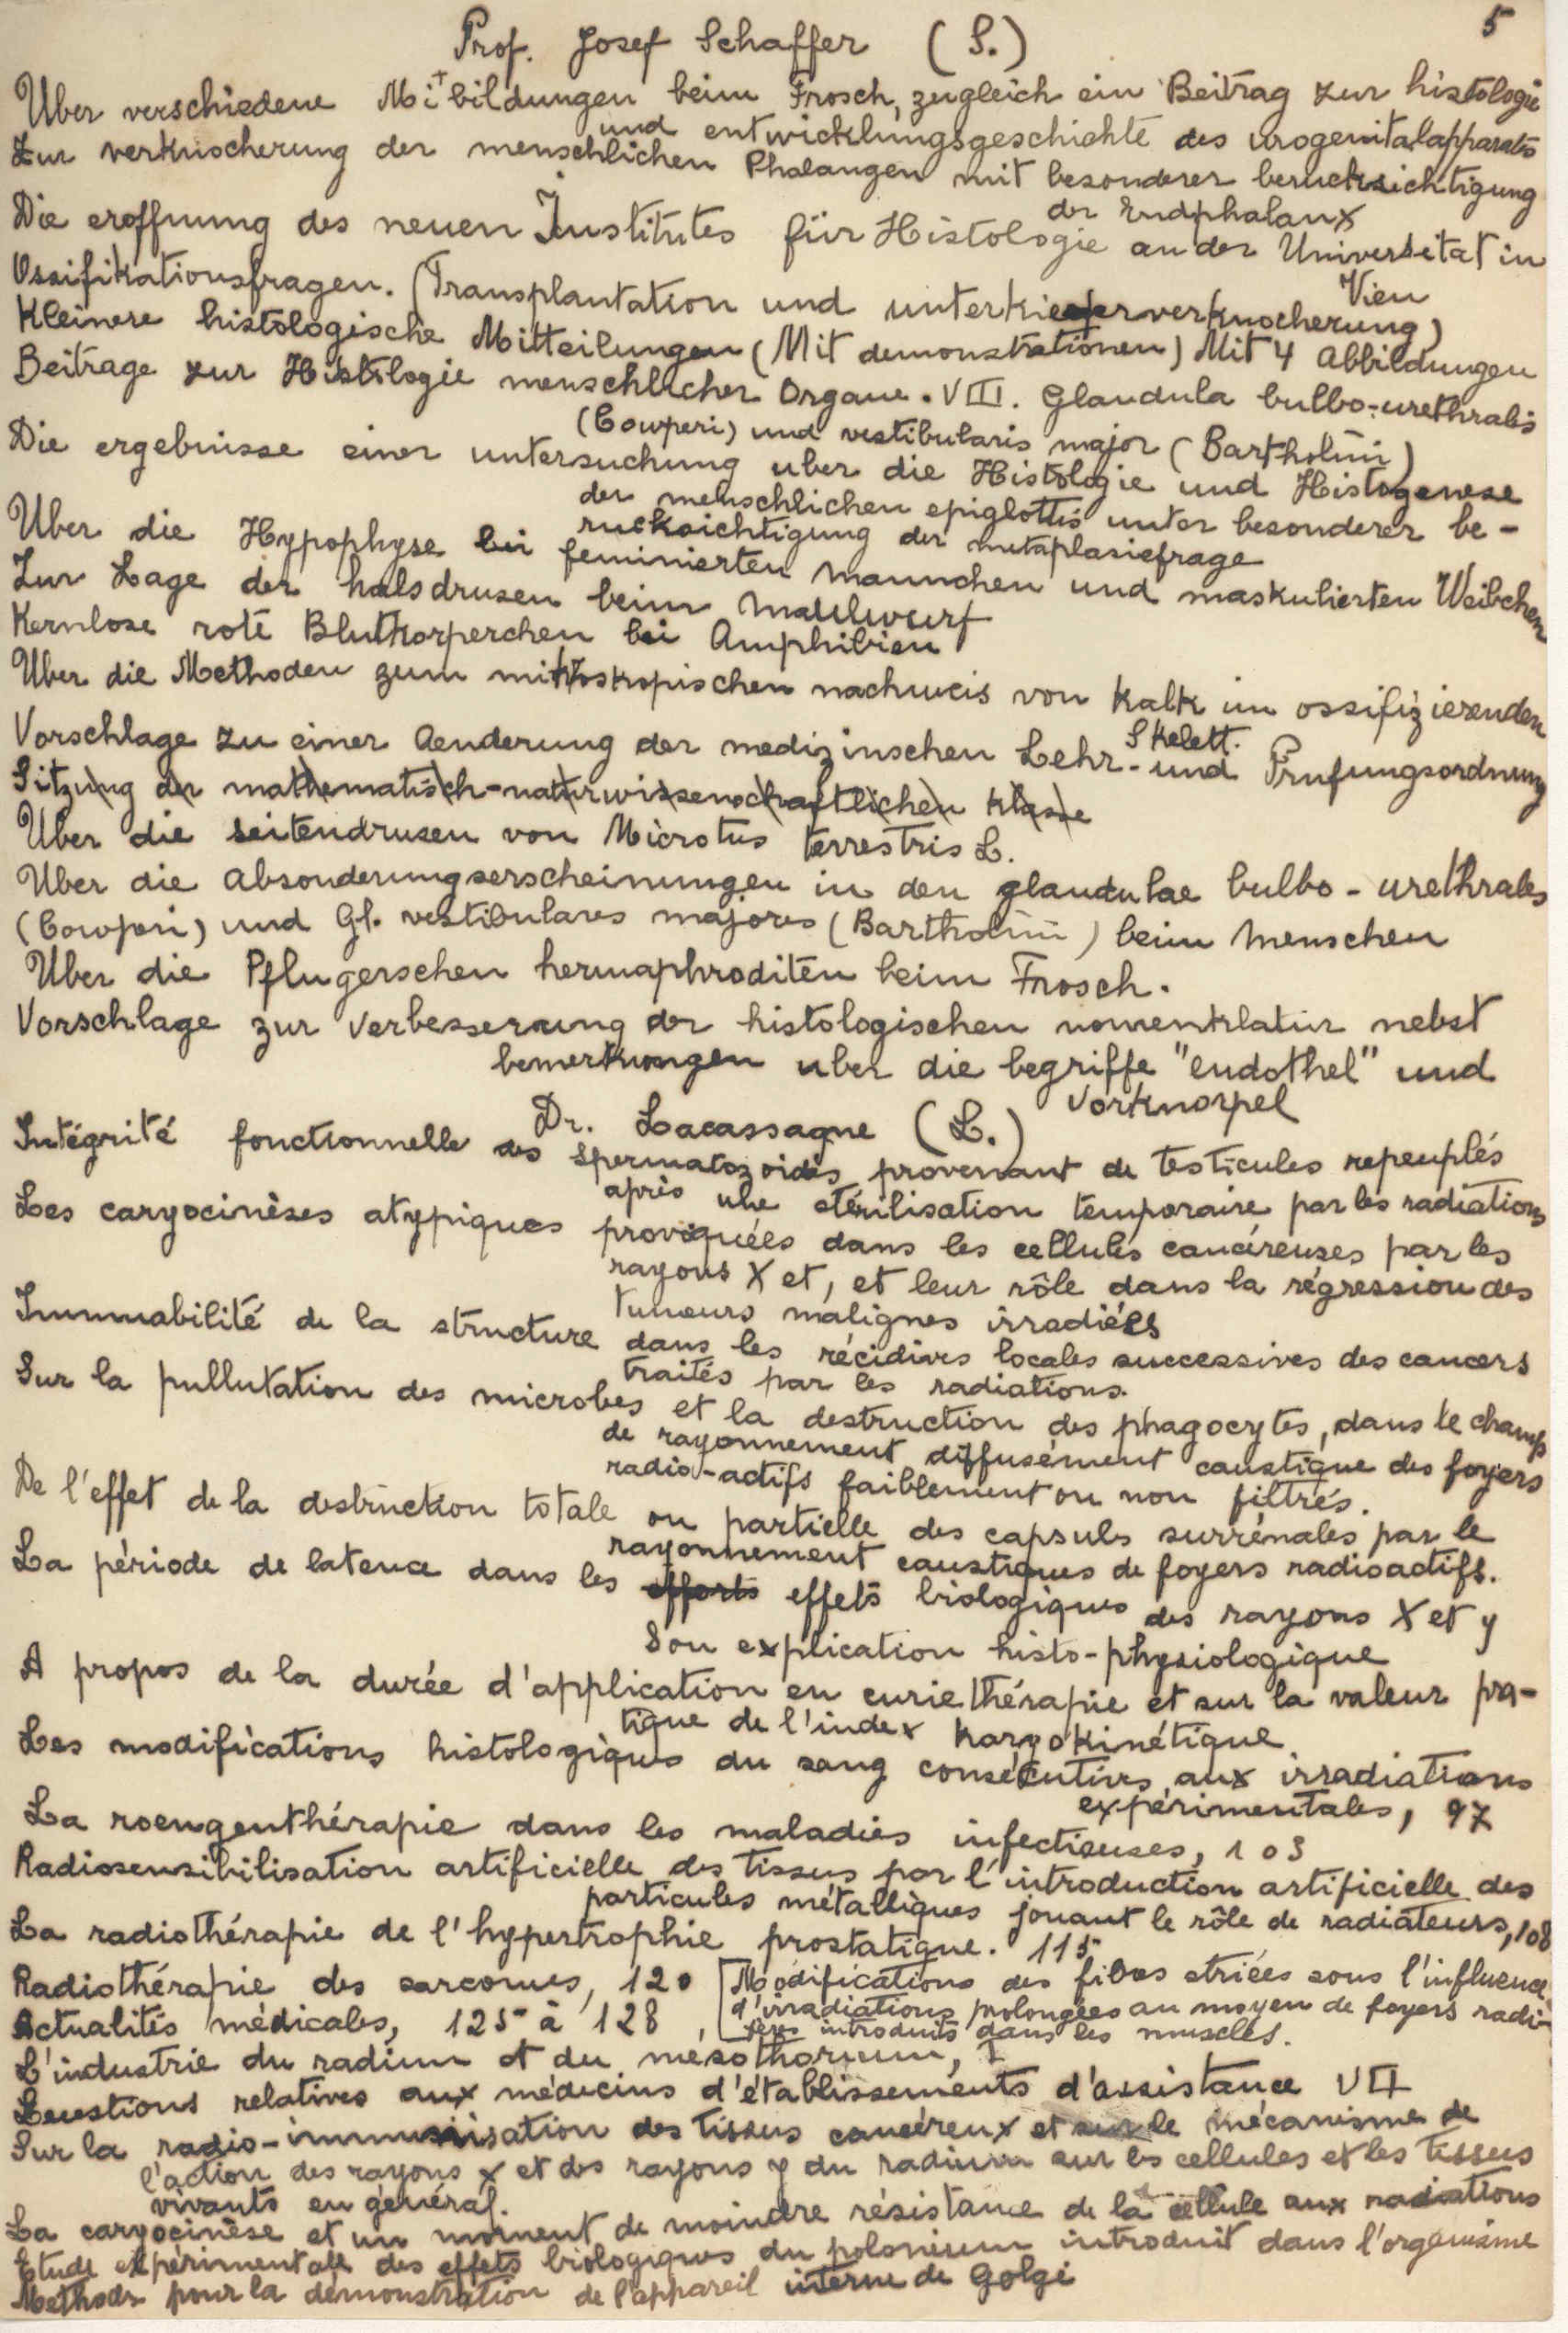 5
Prof. Josef Schaffer (S.)
Uber verschiedene Mitbildungen beim Frosch, zugleich ein Beitrag zur histologie
und entwicklungsgeschichte des urogenitalapparats
Zur verknocherung der menschlichen Phalangen mit besonderer berucksichtigung
der Endphalanx
Die eroffnung des neuen Institutes für Histologie an der Universitat in
Vien
Ossifikationsfragen. (Transplantation und unterkieferverknocherung)
Kleinere histologische Mitteilungen (Mit demonstrationen) Mit 4 abbildungen
Beitrage zur Histologie menschlicher Organe. VIII. Glandula bulbo-urethralis
(Cowperi) und vestibularis major (Bartholini)
Die ergebnisse einer untersuchung uber die Histologie und Histogenese
der menschlichen epiglottis unter besonderer be-
rucksichtigung der metaplasiefrage
Uber die Hypophyse bei feminierten mannchen und maskulierten Weibchen
Zur Lage der halsdrusen beim maulwurf
Kernlose rote Blutkorperchen bei Amphibien
Uber die Methoden zum mikroskopischen nachweis von Kalk im ossifizierenden
Skelett.
Vorschlage zu einer Aenderung der medizinschen Lehr- und Prufungsordnung
Sitzung der mathematisch-naturwissenschaftlichen klasse
Uber die seitendrusen von Microtus terrestris L.
Uber die absonderungserscheinungen in den glandulae bulbo-urethrales
(Cowperi) und Gl. vestibulares majores (Bartholini) beim menschen
Uber die Pflugerschen hermaphroditen beim Frosch.
Vorschlage zur verbesserung der histologischen nomenklatur nebst
bemerkungen uber die begriffe "endothel" und
vorknorpel
Dr. Lacassagne (L.)
Intégrité fonctionnelle des spermatozoides provenant de testicules repeuplés
après une stérilisation temporaire par les radiations
Les caryocinèses atypiques provoquées dans les cellules cancéreuses par les
rayons X et, et leur rôle dans la régression des
tumeurs malignes irradiées
Immuabilité de la structure dans les récidives locales successives des cancers
traités par les radiations.
Sur la pullutation des microbes et la destruction des phagocytes, dans le champ
de rayonnement diffusément caustique des foyers
radio-actifs faiblement ou non filtrés.
De l'effet de la destruction totale ou partielle des capsules surrénales par le
rayonnement caustiques de foyers radioactifs.
La période de latence dans les efforts effets biologiques des rayons X et y
Son explication histo-physiologique
A propos de la durée d'application en curiethérapie et sur la valeur pra-
tique de l'index Karyokinétique
Les modifications histologiques du sang consécutives aux irradiations
expérimentales, 97
La roengenthérapie dans les maladies infectieuses, 103
Radiosensibilisation artificielle des tissus par l'introduction artificielle des
particules métalliques jouant le rôle de radiateurs, 108
La radiothérapie de l'hypertrophie prostatique. 115
Radiothérapie des sarcomes, 120
Actualités médicales, 125 à 128,
[Modifications des fibres striées sous l'influence
d'irradiations prolongées au moyen de foyers radi-
fères introduits dans les muscles.
L'industrie du radium et du mesothorium, I
Questions relatives aux médecins d'établissements d'assistance VII
Sur la radio-immunisation des tissus cancéreux et sur le mécanisme de
l'action des rayons X et des rayons y du radium sur les cellules et les tissus
vivants en général.
La caryocinèse et un moment de moindre résistance de la cellule aux radiations
Etude expérimentale des effets biologiques du polonium introduit dans l'organisme
Methode pour la demonstration de l'appareil interne de Golgi